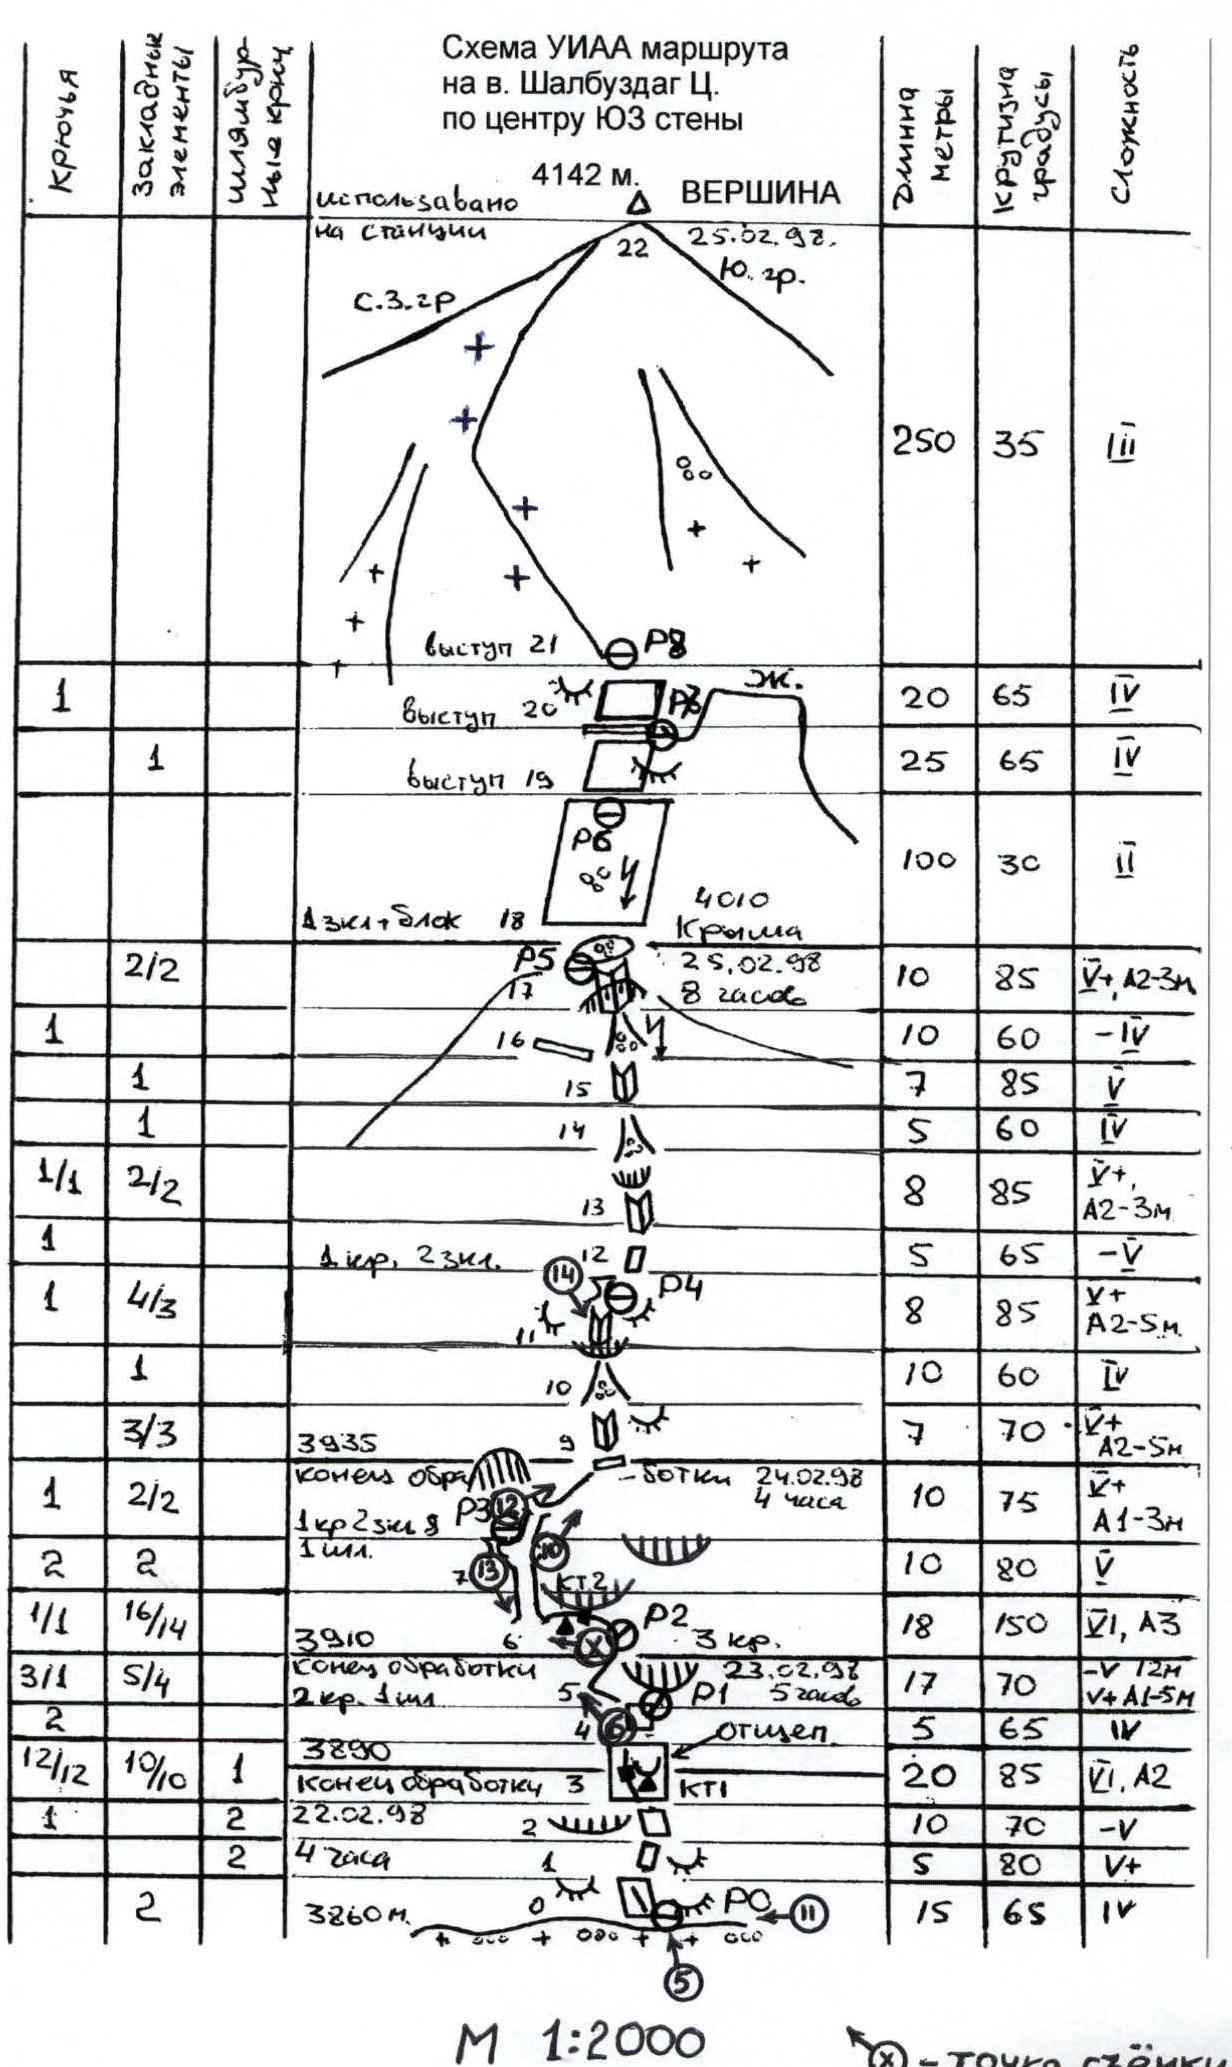 Схема УИАА маршрута
на в. Шалбуздаг Ц.
по центру ЮЗ стены
4142 м.
ВЕРШИНА
Крючья
Закладные элементы
Шлямбурные крюч
Длинна метры
Крутизна градусы
Сложность
использавано
на станции
22
25.02.98.
Ю. гр.
С.З.гр
250 35 III
выступ 21 Р8
1 20 20 65 IV
выступ Р7 Ж.
1 25 65 IV
выступ 19
Р6
100 30 II
1 зкл + блок 18 4010
Крыша
2/2 Р5 25.02.98 10 85 V+, А2-3м
17 8 часов
1 16 10 60 -IV
1 15 7 85 V
1 14 5 60 IV
1/1 2/2 13 8 85 V+, А2-3м
1 1 кр. 2 зкл. 12 5 65 -V
14 Р4
1 4/3 11 8 85 V+ А2-5м
1 10 10 60 IV
3/3 9 7 70 V+ А2-5м
3935
конец обра -ботки 24.02.98
4 часа
1 2/2 Р3 12 10 75 V+ А1-3м
1 кр 2 зкл 8
1 шл.
2 2 7 13 10 10 80 V
КТ2
1/1 16/14 6 Х Р2 18 150 VI, А3
3910 3 кр.
конец обработки 23.02.98
3/1 5/4 5 Р1 5 часов 17 70 -V 12м V+ А1-5м
2 кр. 1 шл
2 4 6 5 65 IV
отщеп.
3890
12/12 10/10 1 3 КТ1 20 85 VI, А2
конец обработки
1 2 22.02.98 2 10 70 -V
2 4 часа 1 5 80 V+
2 0 Р0 11 15 65 IV
3860 м.
5
М 1:2000
Х - точка съёмки